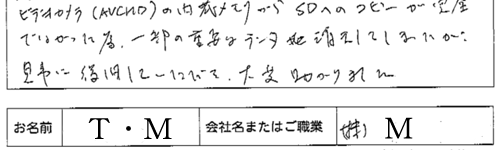 ビデオカメラ(AVCHD)の内蔵メモリから SDへのコピーが完全
でなかった為、一部の重要なデータを消去してしまったが、
見事に復旧していただいて、大変助かりました
お名前 T・M 会社名またはご職業 (株) M